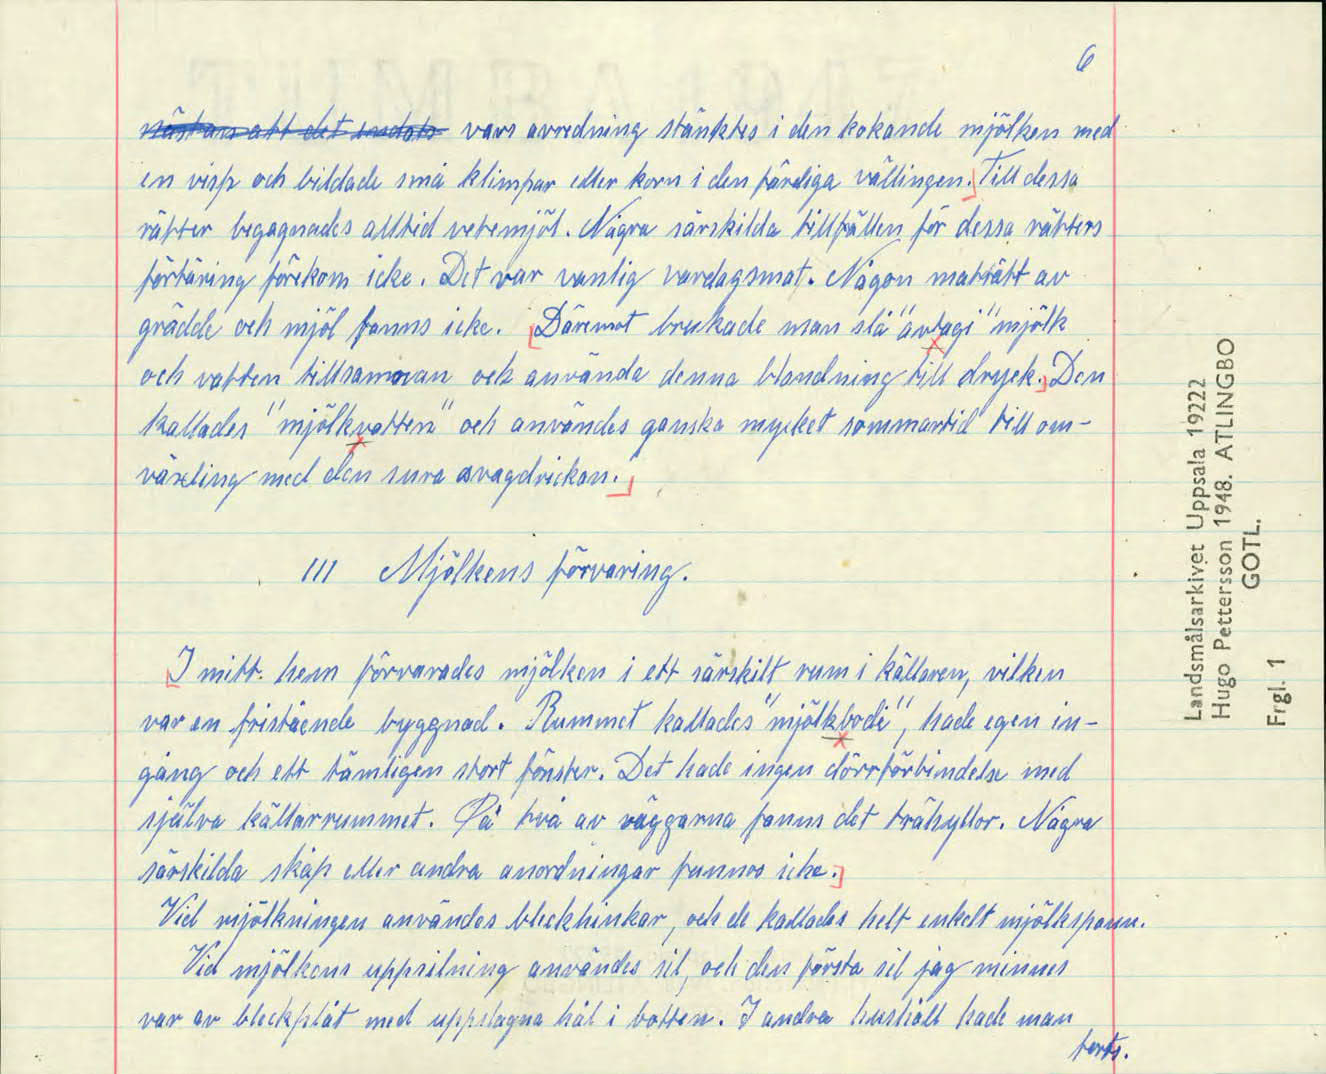 6
nästan att det endats vars avredning stänktes i den kokande mjölken med
en visp och bildade små klimpar eller korn i den färdiga vällingen. Till dessa
rätter begagnades alltid vetemjöl. Några särskilda tillfällen för dessa rätters
förtäring förekom icke. Det var vanlig vardagsmat. Någon maträtt av
grädde och mjöl fanns icke. Däremot brukade man slå "avtagi" mjölk
och vatten tillsamman och använda denna blandning till dryck. Den
kallades "mjölkvatten" och användes ganska mycket sommartid till om-
växling med den sura svagdrickan.
III Mjölkens förvaring.
I mitt hem förvarades mjölken i ett särskilt rum i källaren, vilken
var en fristående byggnad. Rummet kallades "mjölkbodi", hade egen in-
gång och ett tämligen stort fönster. Det hade ingen dörrförbindelse med
själva källarrummet. På två av väggarna fanns det trähyllor. Några
särskilda skåp eller andra anordningar funnos icke.
Vid mjölkningen användes bleckhinkar, och de kallades helt enkelt mjölkspann.
Vid mjölkens uppsilning användes sil, och den första sil jag minnes
var av bleckplåt med uppslagna hål i botten. I andra hushåll hade man
forts.
Landsmålsarkivet Uppsala 19222
Hugo Pettersson 1948. ATLINGBO
GOTL.
Frgl. 1